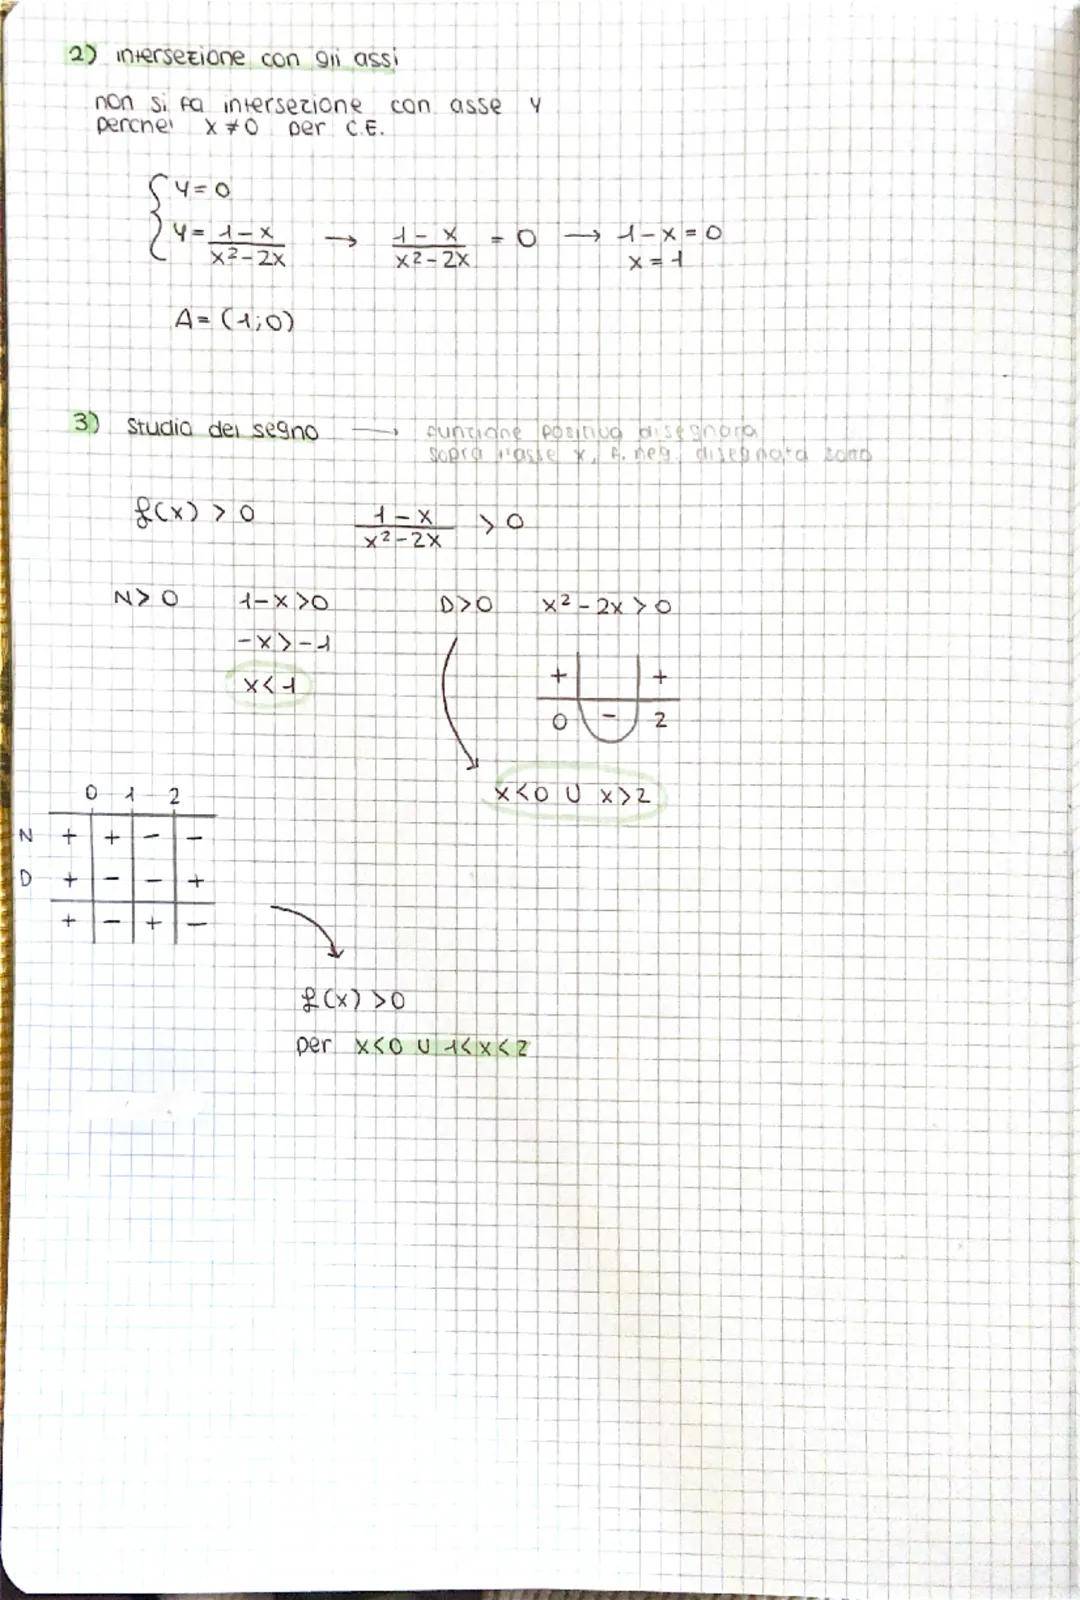 2) intersezione con gli assi
non si fa intersezione con asse y
perche' x ≠ 0 per C.E.
{ y = 0
y = (1-x)/(x²-2x) → (1-x)/(x²-2x) = 0 → 1-x = 0
x = 1
A = (1;0)
3) studio del segno → funzione positiva disegnata
sopra l'asse x, f. neg. disegnata sotto
f(x) > 0 (1-x)/(x²-2x) > 0
N > 0 1-x > 0 D > 0 x²-2x > 0
-x > -1
x < 1
+ +
0 - 2
x < 0 ∪ x > 2
0 1 2
N + + - -
D + - - +
+ - + -
f(x) > 0
per x < 0 ∪ 1 < x < 2